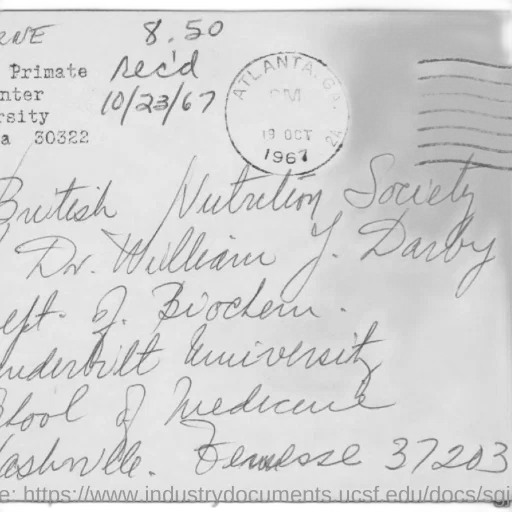 RNE 8.50
Primate Rec'd
nter 10/23/67
rsity
a 30322
ATLANTA, GA.
PM
19 OCT
1967
British Nutrition Society
Dr. William J. Darby
ept. of Biochem.
anderbilt University
School of Medicine
Nashville. Tennesse 37203
e: https://www.industrydocuments.ucsf.edu/docs/sgj